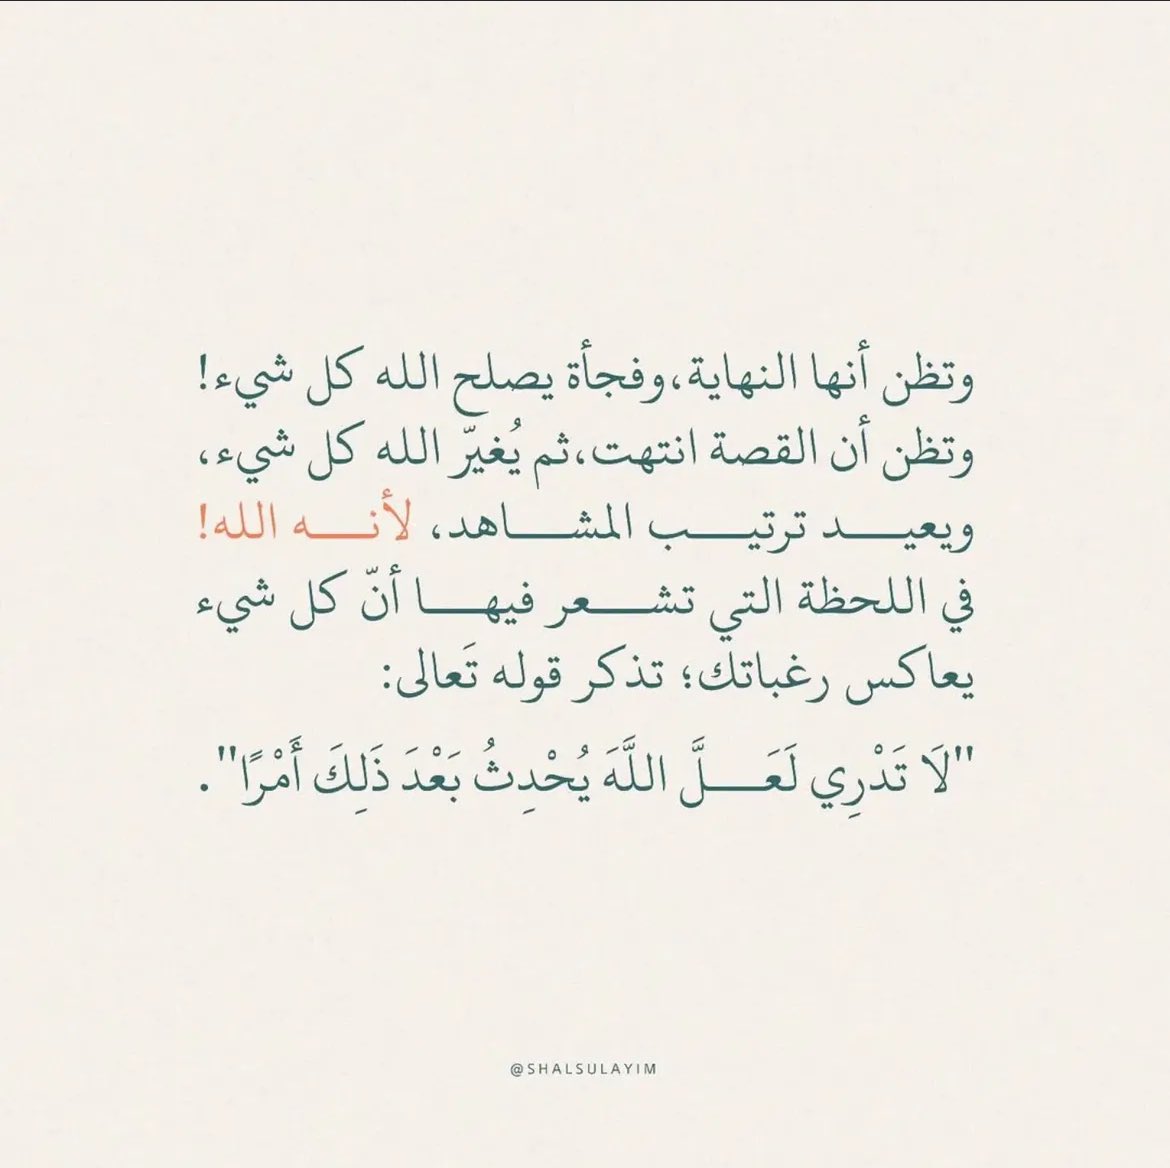 وتظن أنها النهاية،وفجأة يصلح الله كل شيء!
وتظن أن القصة انتهت،ثم يُغيرّ الله كل شيء،
ويعيـــد ترتيـــب المشـــاهد، لأنـــه الله!
في اللحظة التي تشـــعر فيهـــا أنّ كل شيء
يعاكس رغباتك؛ تذكر قوله تَعالى:
"لَا تَدْرِي لَعَـــلَّ اللَّهَ يُحْدِثُ بَعْدَ ذَلِكَ أَمْرًا".
@SHALSULAYIM